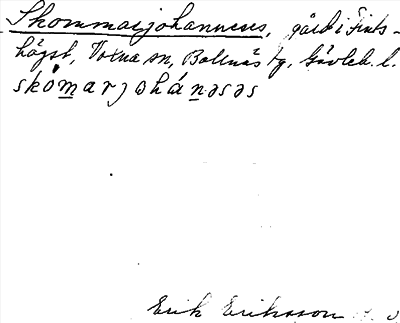 Skommarjohanneses, gård i Finns-
högst, Voxna sn, Bollnäs tg, Gävleb. l.
skómarjohánəsəs
Erik Eriksson